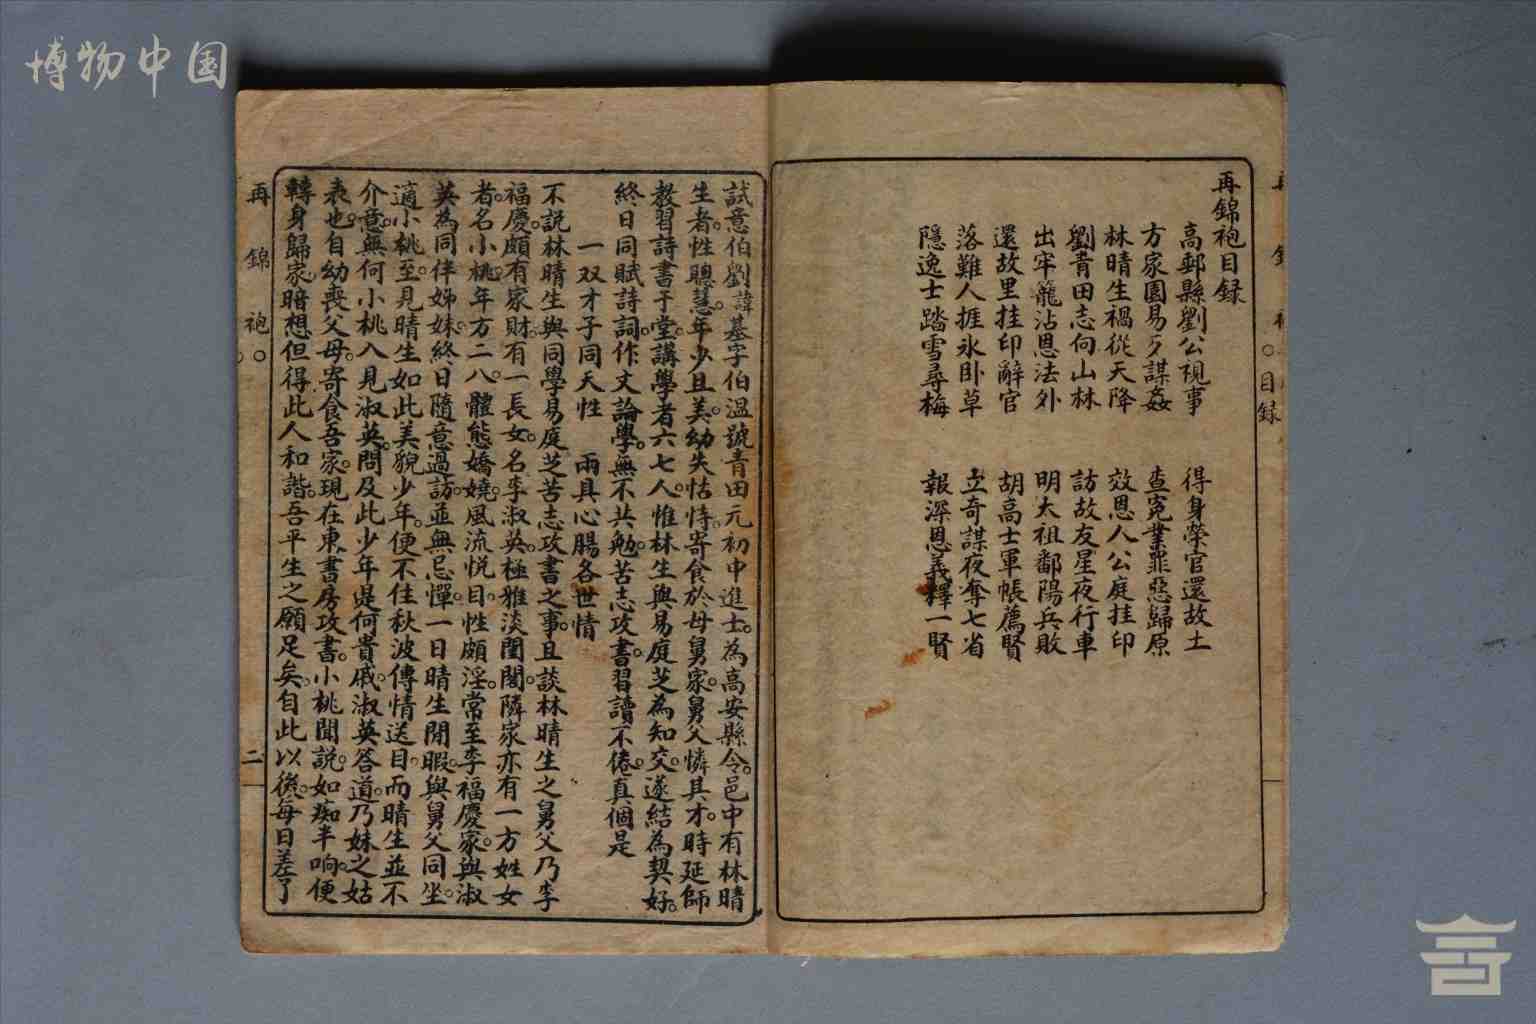 博物中国
○目録
再錦袍目録
高郵縣劉公視事 得身榮官還故土
方家園易歹謀姦 查冤業罪惡歸原
林晴生禍從天降 效恩人公庭挂印
劉青田志向山林 訪故友星夜行車
出牢籠沾恩法外 明太祖鄱陽兵敗
還故里挂印辭官 胡高士軍帳薦賢
落難人捱氷卧草 立奇謀夜奪七省
隱逸士踏雪尋梅 報深恩義釋一賢
試意伯劉諱基字伯溫號青田元初中進士。為高安縣令。邑中有林晴
生者。性聰慧。年少且美。幼失怙恃。寄食於母舅家。舅父憐其才。時延師
教習詩書于堂。講學者六七人。惟林生與易庭芝為知交。遂結為契好。
終日同賦詩詞。作文論學。無不共勉。苦志攻書。習讀不倦。真個是
一双才子同天性 兩具心腸各世情
不說林晴生與同學易庭芝苦志攻書之事。且談林晴生之舅父乃李
福慶。頗有家財。有一長女。名李淑英。極雅淡閨閣。隣家亦有一方姓女
者。名小桃。年方二八。體態嬌嬈。風流悅目。性頗淫。常至李福慶家。與淑
英為同伴姊妹。終日隨意過訪。並無忌憚。一日晴生閒暇。與舅父同坐。
適小桃至。見晴生如此美貌少年。便不住秋波傳情送目。而晴生並不
介意。無何小桃入見淑英。問及此少年是何貴戚。淑英答道。乃妹之姑
表也。自幼喪父母。寄食吾家。現在東書房攻書。小桃聞說。如痴半晌。便
轉身歸家。暗想但得此人和諧。吾平生之願足矣。自此以後。每日差了
再錦袍○ 二